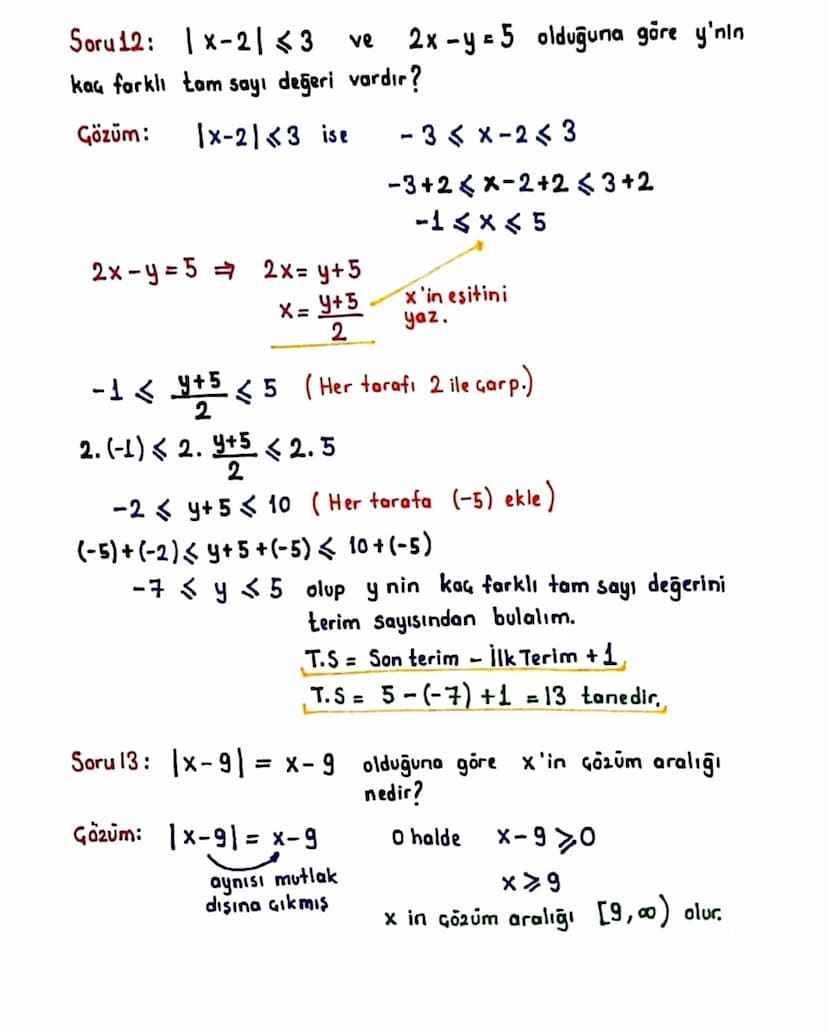 Soru12: |x-2| ⩽ 3 ve 2x-y=5 olduğuna göre y'nin
kaç farklı tam sayı değeri vardır?
Çözüm: |x-2| ⩽ 3 ise -3 ⩽ x-2 ⩽ 3
-3+2 ⩽ x-2+2 ⩽ 3+2
-1 ⩽ x ⩽ 5
2x-y=5 ⇒ 2x= y+5
x = (y+5)/2 x'in eşitini
yaz.
-1 ⩽ (y+5)/2 ⩽ 5 (Her tarafı 2 ile çarp.)
2.(-1) ⩽ 2. (y+5)/2 ⩽ 2.5
-2 ⩽ y+5 ⩽ 10 (Her tarafa (-5) ekle)
(-5)+(-2) ⩽ y+5+(-5) ⩽ 10+(-5)
-7 ⩽ y ⩽ 5 olup y nin kaç farklı tam sayı değerini
terim sayısından bulalım.
T.S = Son terim - İlk Terim + 1
T.S = 5-(-7)+1 = 13 tanedir.
Soru 13: |x-9| = x-9 olduğuna göre x'in çözüm aralığı
nedir?
Çözüm: |x-9| = x-9 O halde x-9 ⩾ 0
aynısı mutlak
dışına çıkmış
x ⩾ 9
x in çözüm aralığı [9,∞) olur.